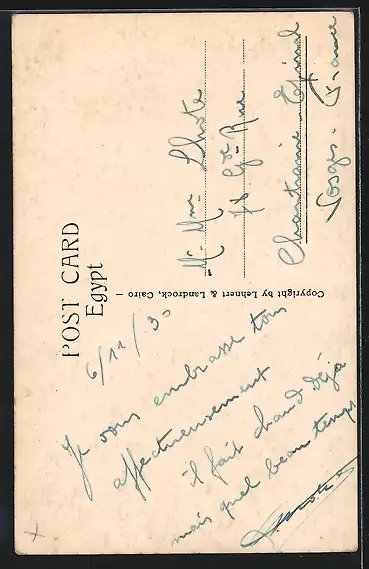 POST CARD
Egypt
Copyright by Lehnert & Landrock, Cairo –
6/11/30
Je vous embrasse tous
affectueusement
il fait chaud déjà
mais quel beau temps
Mr Mme Lhote
76 Gde Rue
Chantraine - Epinal
Vosges - France